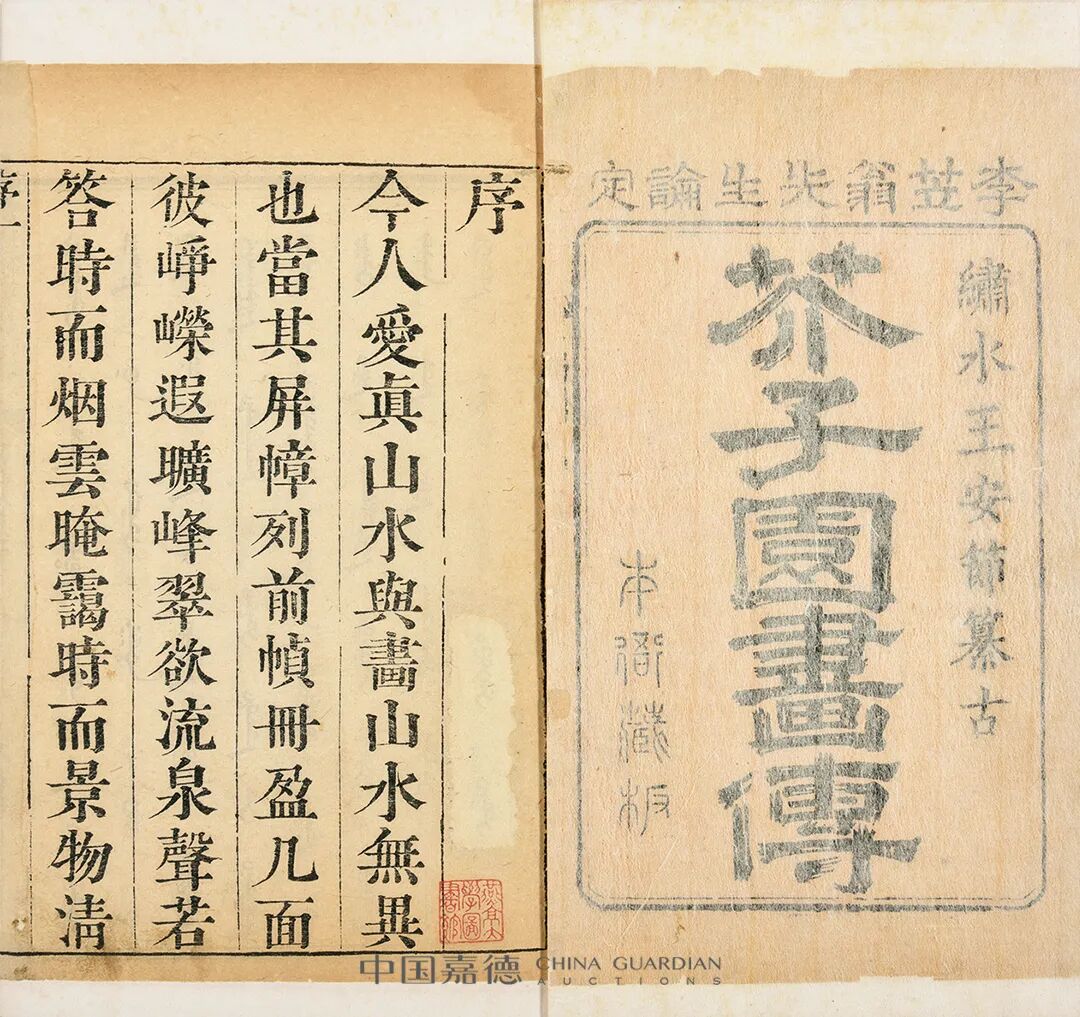 李笠翁先生論定
繡水王安節纂古
芥子園畫傳
本衙藏板
序
今人愛眞山水與畫山水無異
也當其屏幛列前幀冊盈几面
彼崢嶸遐曠峰翠欲流泉聲若
答時而烟雲晻靄時而景物淸
中国嘉德 CHINA GUARDIAN
AUCTIONS